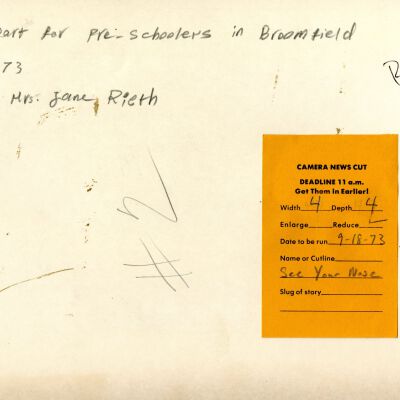 art for pre-schoolers in Broomfield
73
Mrs. Jane Rieth
#2
CAMERA NEWS CUT
DEADLINE 11 a.m.
Get Them in Earlier!
Width 4 Depth 4
Enlarge Reduce ✓
Date to be run 9-18-73
Name or Cutline
See Your Nose
Slug of story